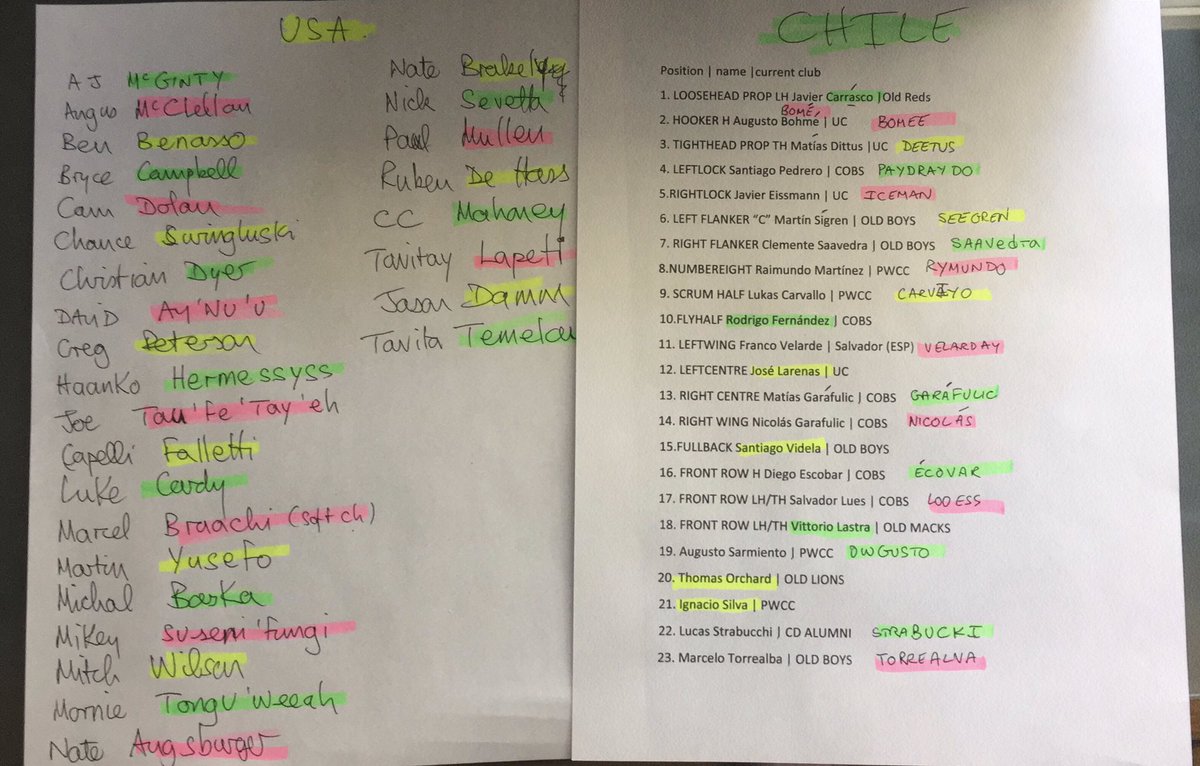 USA
AJ McGINTY
Angus McClellan
Ben Benasso
Bryce Campbell
Cam Dolan
Chance Swingluski
Christian Dyer
DAVID AY'NU'U
Greg Peterson
Haanko Hermessyss
Joe Tau'Fe'Tay'eh
Capelli Falletti
Luke Cardy
Marcel Braachi (soft ch)
Martin Yusefo
Michal Baska
Mikey Su-seni'fungi
Mitch Wilson
Mornie Tongu'weeah
Nate Augsburger
Nate
Nick Sevetta
Paul Mullen
Ruben De Hass
CC Mahoney
Tavitay Lapeti
Jason Damm
Tavita Temelou
CHILE
Position | name |current club
1. LOOSEHEAD PROP LH Javier Carrásco |Old Reds
BOMÉ,
2. HOOKER H Augusto Bohme | UC BOMEE
3. TIGHTHEAD PROP TH Matías Dittus |UC DEETUS
4. LEFTLOCK Santiago Pedrero | COBS PAYDRAYDO
5.RIGHTLOCK Javier Eissmann | UC ICEMAN
6. LEFT FLANKER “C” Martín Sígren | OLD BOYS SEEGREN
7. RIGHT FLANKER Clemente Saavedra | OLD BOYS SAAVedra
8.NUMBEREIGHT Raimundo Martínez | PWCC RYMUNDO
9. SCRUM HALF Lukas Carvallo | PWCC CARVIYO
10.FLYHALF Rodrigo Fernández | COBS
11. LEFTWING Franco Velarde | Salvador (ESP) VELARDAY
12. LEFTCENTRE José Larenas | UC
13. RIGHT CENTRE Matías Garáfulic | COBS GARÁFULIC
14. RIGHT WING Nicolás Garafulic | COBS NICOLÁS
15.FULLBACK Santiago Videla | OLD BOYS
16. FRONT ROW H Diego Escobar | COBS ÉCOVAR
17. FRONT ROW LH/TH Salvador Lues | COBS LOOESS
18. FRONT ROW LH/TH Vittorio Lastra | OLD MACKS
19. Augusto Sarmiento | PWCC OWGUSTO
20. Thomas Orchard | OLD LIONS
21. Ignacio Silva | PWCC
22. Lucas Strabucchi | CD ALUMNI STRABUCKI
23. Marcelo Torrealba | OLD BOYS TORREALVA